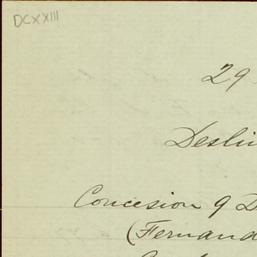 DCXXIII
29
Deslin
Concesion q D
(Fernand